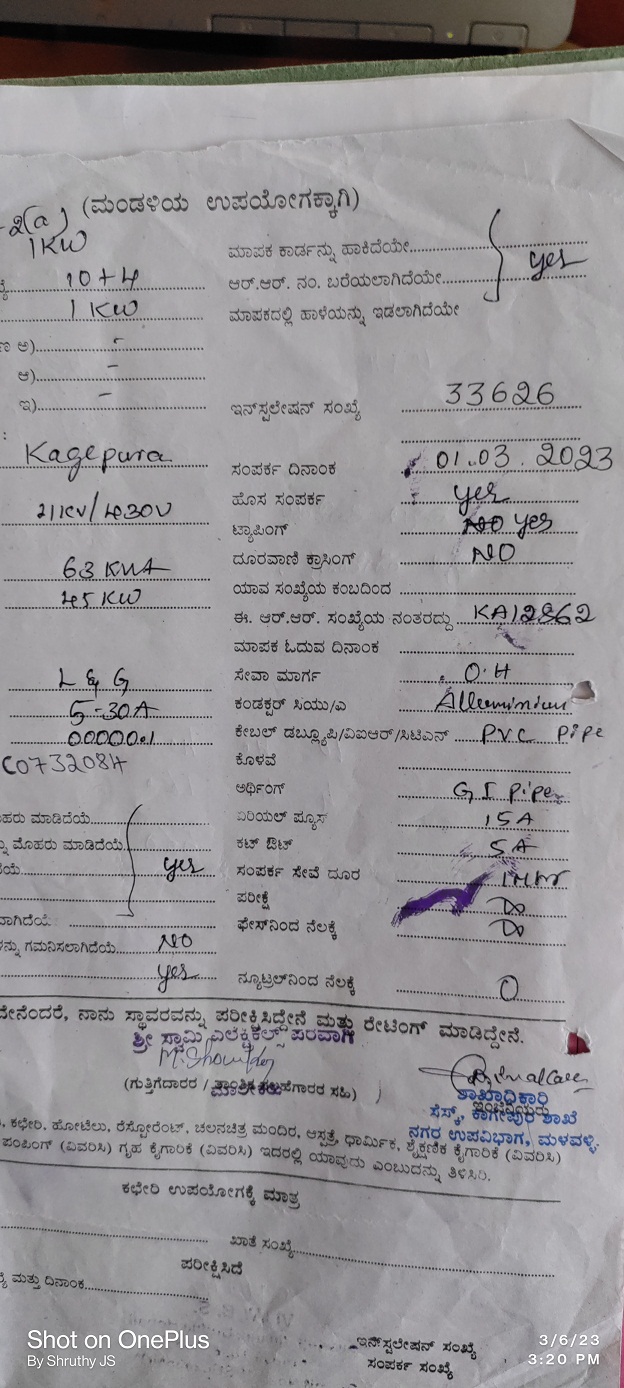 2(a) (ಮಂಡಳಿಯ ಉಪಯೋಗಕ್ಕಾಗಿ)
1KW
ಮಾಪಕ ಕಾರ್ಡನ್ನು ಹಾಕಿದೆಯೇ
10+4 ಆರ್.ಆರ್. ನಂ. ಬರೆಯಲಾಗಿದೆಯೇ yes
1 KW ಮಾಪಕದಲ್ಲಿ ಹಾಳೆಯನ್ನು ಇಡಲಾಗಿದೆಯೇ
ಅ) -
ಆ) -
ಇ) - ಇನ್‌ಸ್ಟಲೇಷನ್ ಸಂಖ್ಯೆ 33626
Kagepura ಸಂಪರ್ಕ ದಿನಾಂಕ 01.03.2023
ಹೊಸ ಸಂಪರ್ಕ yes
11KV/430V ಟ್ಯಾಪಿಂಗ್ NO yes
63 KVA ದೂರವಾಣಿ ಕ್ರಾಸಿಂಗ್ NO
45 KW ಯಾವ ಸಂಖ್ಯೆಯ ಕಂಬದಿಂದ
ಈ. ಆರ್.ಆರ್. ಸಂಖ್ಯೆಯ ನಂತರದ್ದು KA12862
ಮಾಪಕ ಓದುವ ದಿನಾಂಕ
L & G ಸೇವಾ ಮಾರ್ಗ O.H
5-30A ಕಂಡಕ್ಟರ್ ಸಿಯು/ಎ Alluminium
00000.1 ಕೇಬಲ್ ಡಬ್ಲ್ಯೂಪಿ/ವಿಐಆರ್/ಸಿಟಿಎಸ್ PVC PiPe
C073208H ಕೊಳವೆ
ಅರ್ಥಿಂಗ್ G I pipe
ಮೊಹರು ಮಾಡಿದೆಯೆ ಏರಿಯಲ್ ಪ್ಯೂಸ್ 15A
ಮೊಹರು ಮಾಡಿದೆಯೆ ಕಟ್ ಔಟ್ 5A
yes ಸಂಪರ್ಕ ಸೇವೆ ದೂರ
ಪರೀಕ್ಷೆ Do
ಫೇಸ್‌ನಿಂದ ನೆಲಕ್ಕೆ Do
ಗಮನಿಸಲಾಗಿದೆಯೆ NO
yes ನ್ಯೂಟ್ರಲ್‌ನಿಂದ ನೆಲಕ್ಕೆ 0
ನಾನು ಸ್ಥಾವರವನ್ನು ಪರೀಕ್ಷಿಸಿದ್ದೇನೆ ಮತ್ತು ರೇಟಿಂಗ್ ಮಾಡಿದ್ದೇನೆ.
ಶ್ರೀ ಸ್ವಾಮಿ ಎಲೆಕ್ಟ್ರಿಕಲ್ಸ್ ಪರವಾಗಿ
(ಗುತ್ತಿಗೆದಾರರ / ಸಹಿ)
ಮಾಲೀಕರು
ಶಾಖಾಧಿಕಾರಿ
ಸೆಸ್ಕ್, ಕಾಗೇಪುರ ಶಾಖೆ
ನಗರ ಉಪವಿಭಾಗ, ಮಳವಳ್ಳಿ.
ಕಛೇರಿ, ಹೋಟೆಲು, ರೆಸ್ಟೋರೆಂಟ್, ಚಲನಚಿತ್ರ ಮಂದಿರ, ಆಸ್ಪತ್ರೆ, ಧಾರ್ಮಿಕ, ಶೈಕ್ಷಣಿಕ ಕೈಗಾರಿಕೆ (ವಿವರಿಸಿ)
ಪಂಪಿಂಗ್ (ವಿವರಿಸಿ) ಗೃಹ ಕೈಗಾರಿಕೆ (ವಿವರಿಸಿ) ಇದರಲ್ಲಿ ಯಾವುದು ಎಂಬುದನ್ನು ತಿಳಿಸಿರಿ.
ಕಛೇರಿ ಉಪಯೋಗಕ್ಕೆ ಮಾತ್ರ
ಖಾತೆ ಸಂಖ್ಯೆ
ಪರೀಕ್ಷಿಸಿದೆ
ಮತ್ತು ದಿನಾಂಕ
ಇನ್‌ಸ್ಟಲೇಷನ್ ಸಂಖ್ಯೆ
ಸಂಪರ್ಕ ಸಂಖ್ಯೆ
Shot on OnePlus
By Shruthy JS
3/6/23
3:20 PM